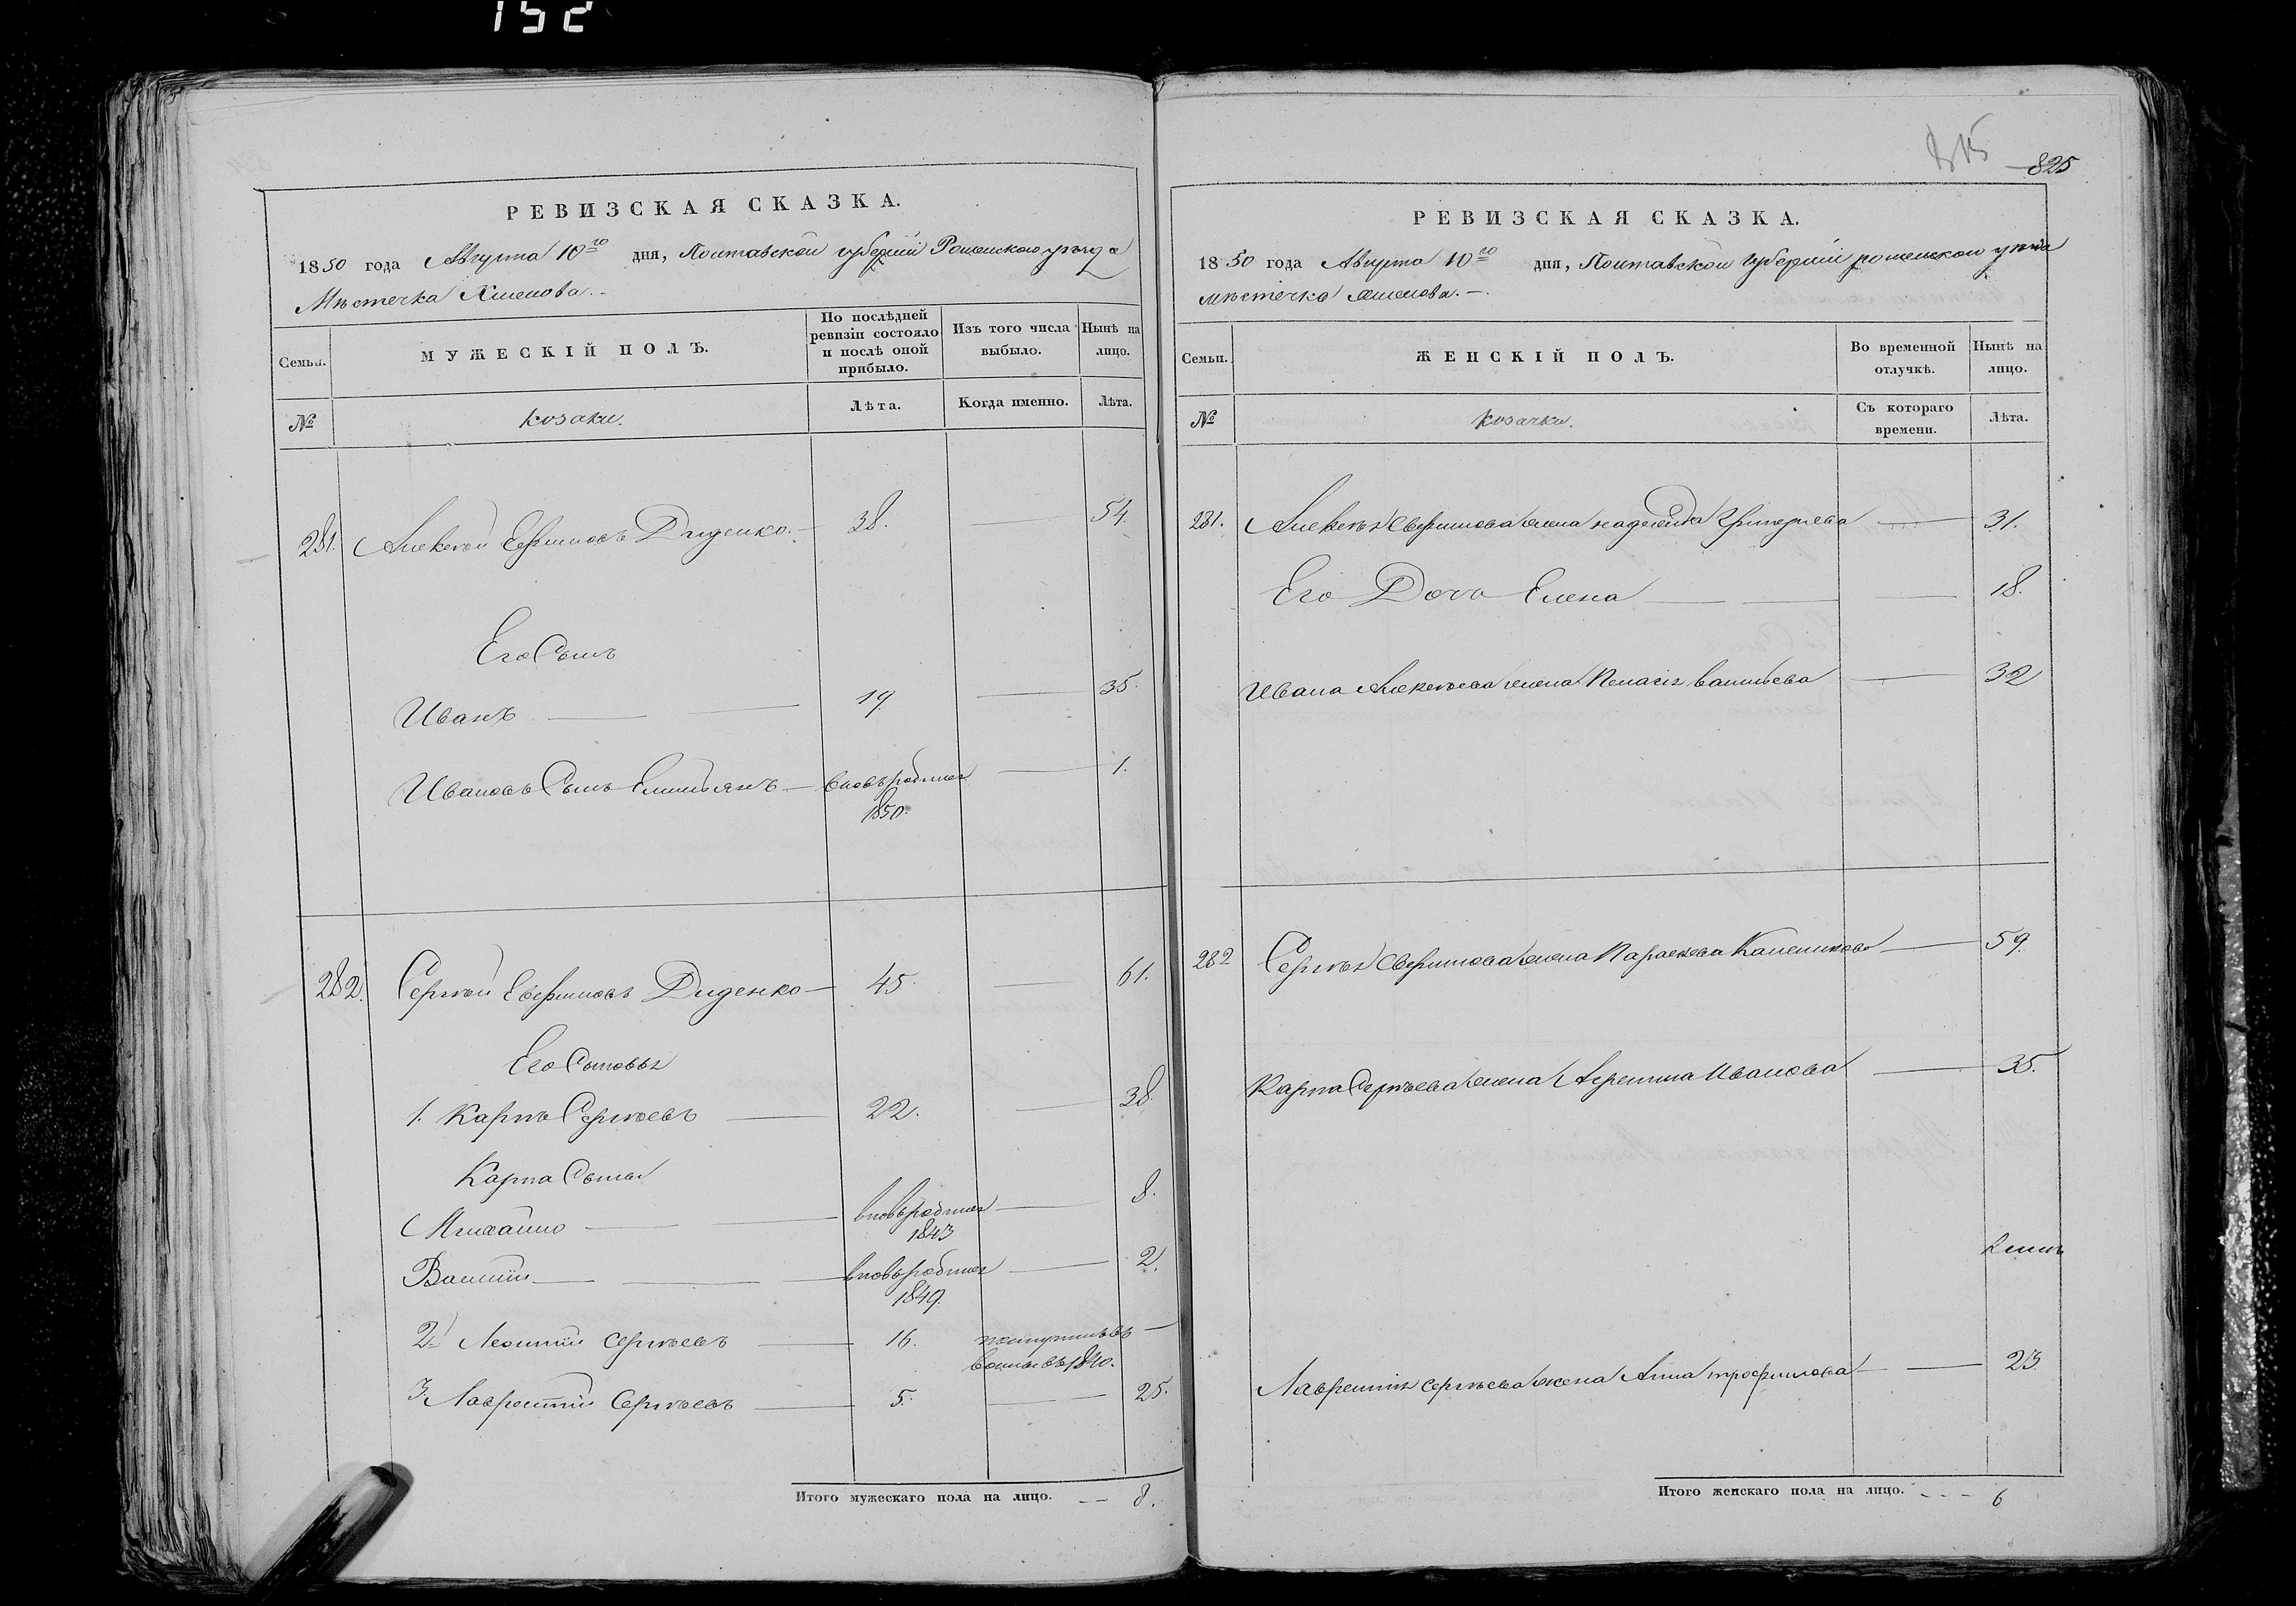 152
РЕВИЗСКАЯ СКАЗКА.
1850 года Августа 10го дня, Полтавской губерніи Роменского уезда
Мѣстечка Хмелова.
Семьи.
МУЖЕСКІЙ ПОЛЪ.
По послѣдней ревизіи состояло и послѣ оной прибыло.
Изъ того числа выбыло.
Нынѣ на лицо.
№
козаки.
Лѣта.
Когда именно.
Лѣта.
281. Алексѣй Ефимовъ Диденко. 38. 54.
Его Сынъ
Иванъ 19. 35.
Ивановъ Сынъ Емильянъ вновьродился 1.
1850.
282. Сергѣй Ефимовъ Диденко 45. 61.
Его Сыновья
1. Карпъ Сергѣевъ 22. 38
Карпа Сыны
Михайло вновьродился 8.
1843
Василій вновьродился 2.
1849.
2. Леонтій Сергѣевъ 16.
въ 1840.
3. Лаврентій Сергѣевъ 5. 25.
Итого мужескаго пола на лицо. 8.
815
825
РЕВИЗСКАЯ СКАЗКА.
1850 года Августа 10го дня, Полтавской губерніи роменского уезда
мѣстечка Хмелова.
Семьи.
ЖЕНСКІЙ ПОЛЪ.
Во временной отлучкѣ.
Нынѣ на лицо.
№
козачки.
Съ котораго времени.
Лѣта.
281. Алексѣя Ефимова жена надежда Григориева 31.
Его Доч Елена 18.
Ивана Алексѣева жена Пелагія васильева 32
282 Сергѣя Ефимова жена Параскева 59.
Карпа Сергѣева жена Иванова 35.
Лаврентія Сергѣева жена Анна трофимова 23.
Итого женскаго пола на лицо. 6